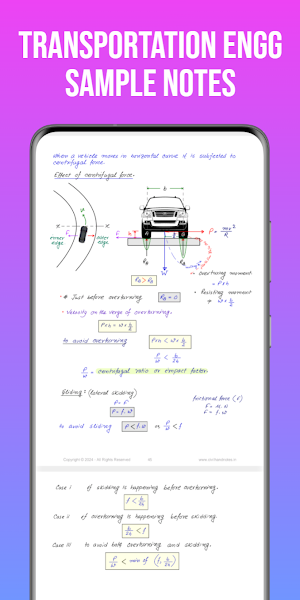 TRANSPORTATION ENGG
SAMPLE NOTES
When a vehicle moves in horizontal curve it is subjected to
centrifugal force.
Effect of centrifugal force-
b
S
x
x
F
outer
edge
inner
edge
P = mv²/R
h
W
R_A
R_B
R_B > R_A
→ overturning moment
= P×h
• Resisting moment
= W×b/2
• # Just before overturning R_A = 0
• Velocity on the verge of overturning.
P×h = W×b/2
to avoid overturning
P×h < W×b/2
P/W < b/2h
P/W = centrifugal ratio or impact factor
Sliding:- (lateral skidding)
P = F
P = f.W
frictional force (f)
F = μ.N
F = f.W
to avoid sliding P < f.W or P/W < f
Copyright © 2024 - All Rights Reserved
Case I if sliding is happening before overturning.
f < b/2h
Case II if overturning is happening before sliding.
b/2h < f
Case III to avoid both overturning and sliding.
P/W < min of (f, b/2h)